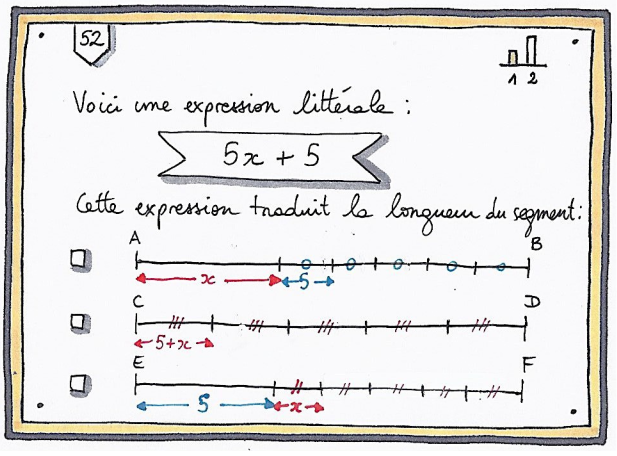 52
1 2
Voici une expression littérale :
5x + 5
Cette expression traduit la longueur du segment :
A B
x 5
C D
5+x
E F
5 x